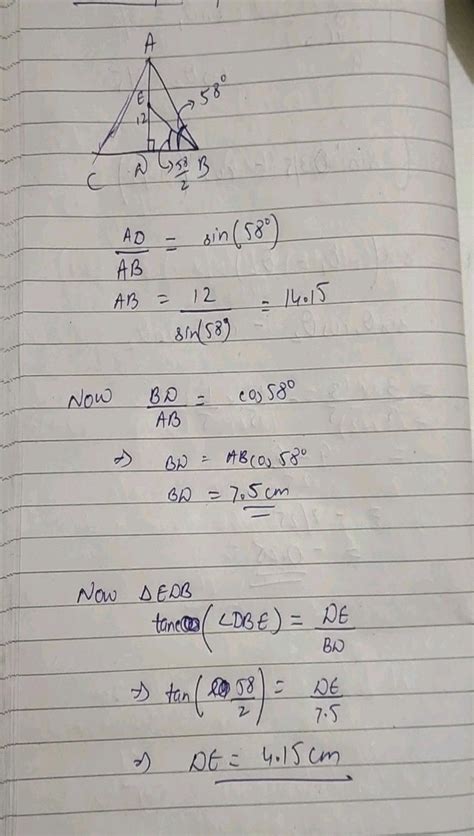 A
E
12
58°
C
D
58/2
B
AD/AB = sin(58°)
AB = 12/sin(58°) = 14.15
Now BD/AB = cos 58°
⇒ BD = AB cos 58°
BD = 7.5 cm
Now ΔEDB
tan (∠DBE) = DE/BD
⇒ tan(58/2) = DE/7.5
⇒ DE = 4.15 cm